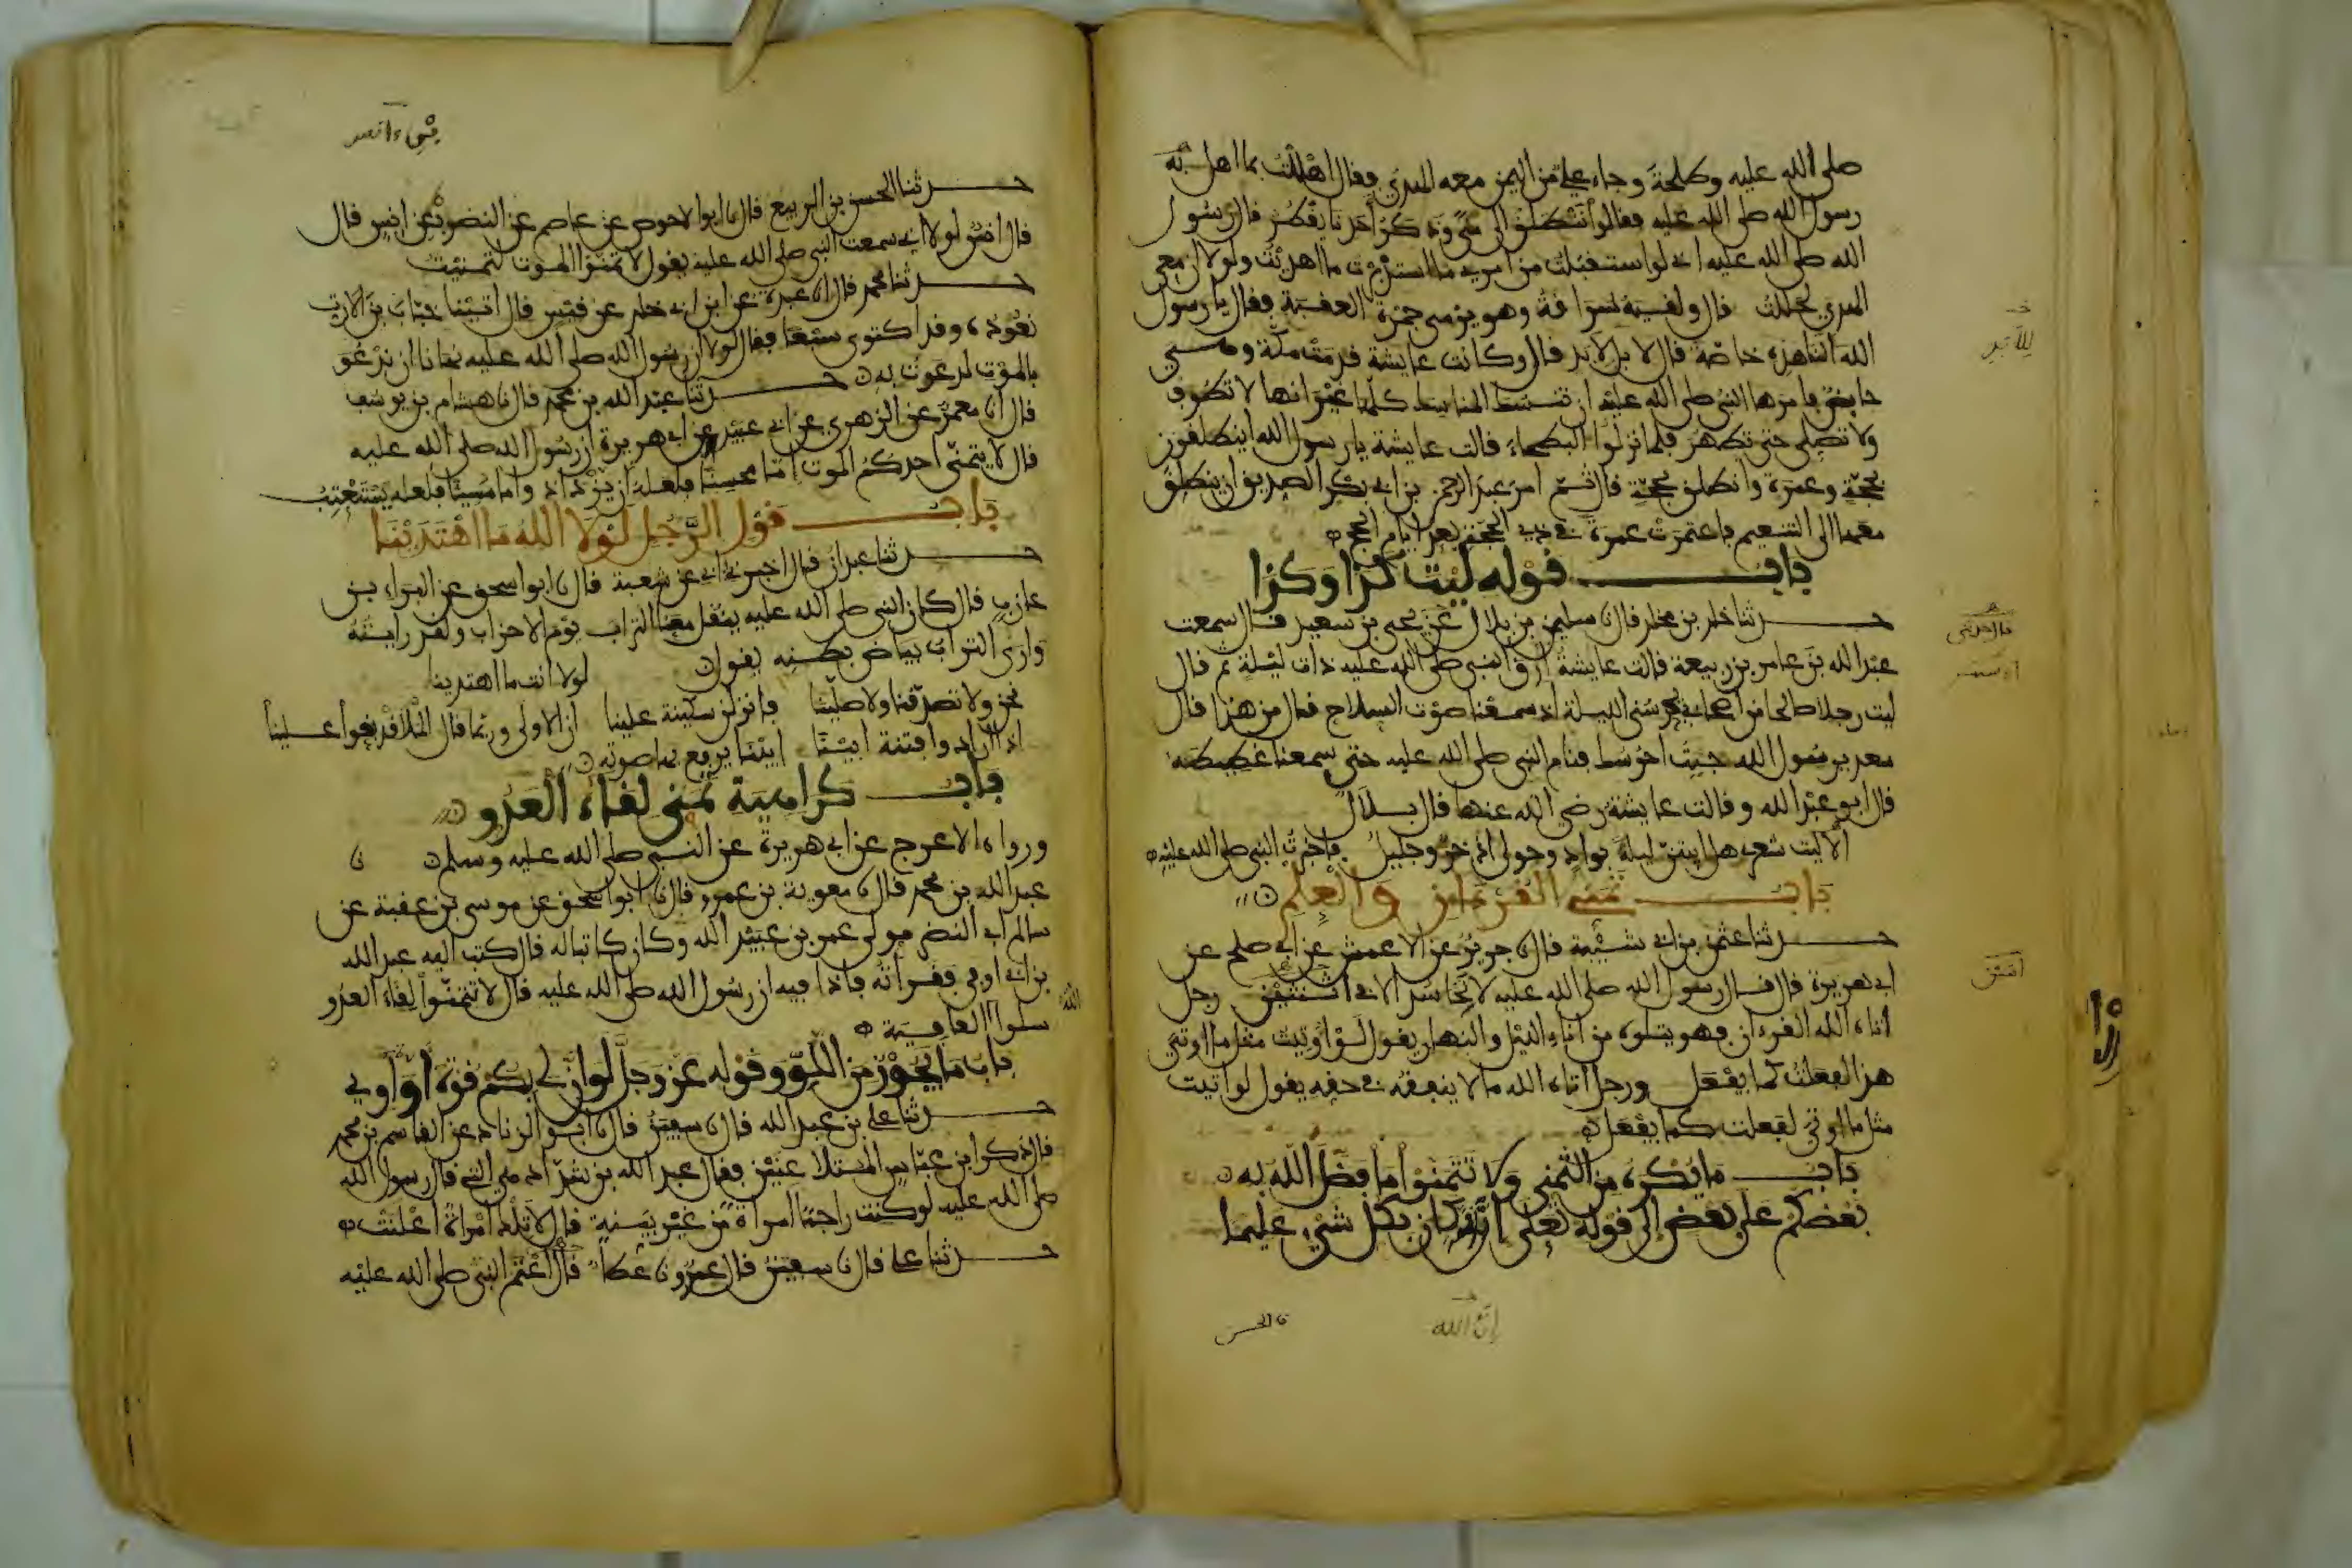 صلى الله عليه وطلحة وجاء علي من اليمن معه الهدي فقال اهللت بما اهل به
رسول الله صلى الله عليه فقالوا أننطلق الى منى وذكر أحدنا يقطر قال رسول
الله صلى الله عليه اني لو استقبلت من امري ما استدبرت ما اهديت ولولا ان معي
الهدي لحللت قال ولقيه سراقة وهو يرمي جمرة العقبة فقال يا رسول
الله ألنا هذه خاصة قال لا بل لابد قال وكانت عايشة قدمت مكة وهي
حايض فامرها النبي صلى الله عليه ان تنسك المناسك كلها غير انها لا تطوف
ولا تصلي حتى تطهر فلما نزلوا البطحاء قالت عايشة يا رسول الله اينطلقون
بحجة وعمرة وانطلق بحجة قال ثم امر عبد الرحمن بن ابي بكر الصديق ان ينطلق
معها الى التنعيم فاعتمرت عمرة في ذي الحجة بعد ايام الحج
باب قوله ليت كذا وكذا
حدثنا خلد بن مخلد قال نا سليمن بن بلال عن يحيى بن سعيد قال سمعت
عبد الله بن عامر بن ربيعة قالت عايشة أرق النبي صلى الله عليه ذات ليلة ثم قال
ليت رجلا صالحا من اصحابي يحرسني الليلة اذ سمعنا صوت السلاح قال من هذا قال
سعد يرسول الله جيت احرسك فنام النبي صلى الله عليه حتى سمعنا غطيطه
قال ابو عبد الله وقالت عايشة رضي الله عنها قال بلال
ألا ليت شعري هل ابيتن ليلة بواد وحولي اذخر وجليل فاخبرت النبي صلى الله عليه
باب تمني القرءان والعلم
حدثنا عثمن بن ابي شيبة قال نا جرير عن الاعمش عن ابي صلح عن
ابي هريرة قال قال رسول الله صلى الله عليه لا تحاسد الا في اثنتين رجل
أتاه الله القرءان فهو يتلوه من اناء الليل والنهار يقول لو أوتيت مثل ما اوتي
هذا لفعلت كما يفعل ورجل أتاه الله مالا ينفقه في حقه يقول لو اتيت
مثل ما اوتي لفعلت كما يفعل
باب ما يكره من التمني ولا تتمنوا ما فضل الله به
بعضكم على بعض الى قوله تعلى ان الله كان بكل شيء عليما
للأبد
قال حدثني
اثنتين
ان الله
نا الحسن
حدثنا الحسن بن الربيع قال نا ابو الاحوص عن عاصم عن النضر بن انس قال
قال انس لولا اني سمعت النبي صلى الله عليه يقول لا تمنوا الموت لتمنيت
حدثنا محمد قال نا عبدة عن ابن ابي خلد عن قيس قال اتينا خباب بن الارت
نعوده وقد اكتوى سبعا فقال لولا ان رسول الله صلى الله عليه نهانا ان ندعو
بالموت لدعوت به حدثنا عبد الله بن محمد قال نا هشام بن يوسف
قال انا معمر عن الزهري عن ابي عبيد عن ابي هريرة ان رسول الله صلى الله عليه
قال لا يتمنى احدكم الموت اما محسنا فلعله ان يزداد واما مسيئا فلعله يستعتب
باب قول الرجل لولا الله ما اهتدينا
حدثنا عبدان قال اخبرني ابي عن شعبة قال نا ابو اسحق عن البراء بن
عازب قال كان النبي صلى الله عليه ينقل معنا التراب يوم الاحزاب ولقد رايته
وارى التراب بياض بطنه يقول لولا انت ما اهتدينا
نحن ولا تصدقنا ولا صلينا فانزلن سكينة علينا ان الاولى وربما قال الملا قد بغوا علينا
اذا أرادوا فتنة ابينا ابينا يرفع بها صوته
باب كراهية تمني لقاء العدو
ورواه الاعرج عن ابي هريرة عن النبي صلى الله عليه وسلم نا
عبد الله بن محمد قال نا معوية بن عمرو قال نا ابو اسحق عن موسى بن عقبة عن
سالم ابي النضر مولى عمر بن عبيد الله وكان كاتبا له قال كتب اليه عبد الله
بن ابي اوفى فقرأته فاذا فيه ان رسول الله صلى الله عليه قال لا تتمنوا لقاء العدو
سلوا العافية
باب ما يجوز من اللو وقوله عز وجل لو ان لي بكم قوة أو آوي
حدثنا علي بن عبد الله قال نا سفين قال نا ابو الزناد عن القاسم بن محمد
قال ذكر ابن عباس المتلاعنين فقال عبد الله بن شداد هي التي قال رسول الله
صلى الله عليه لو كنت راجما امراة من غير بينة قال لا تلك امراة اعلنت
حدثنا علي قال نا سفين قال عمرو نا عطاء قال أعتم النبي صلى الله عليه
الله